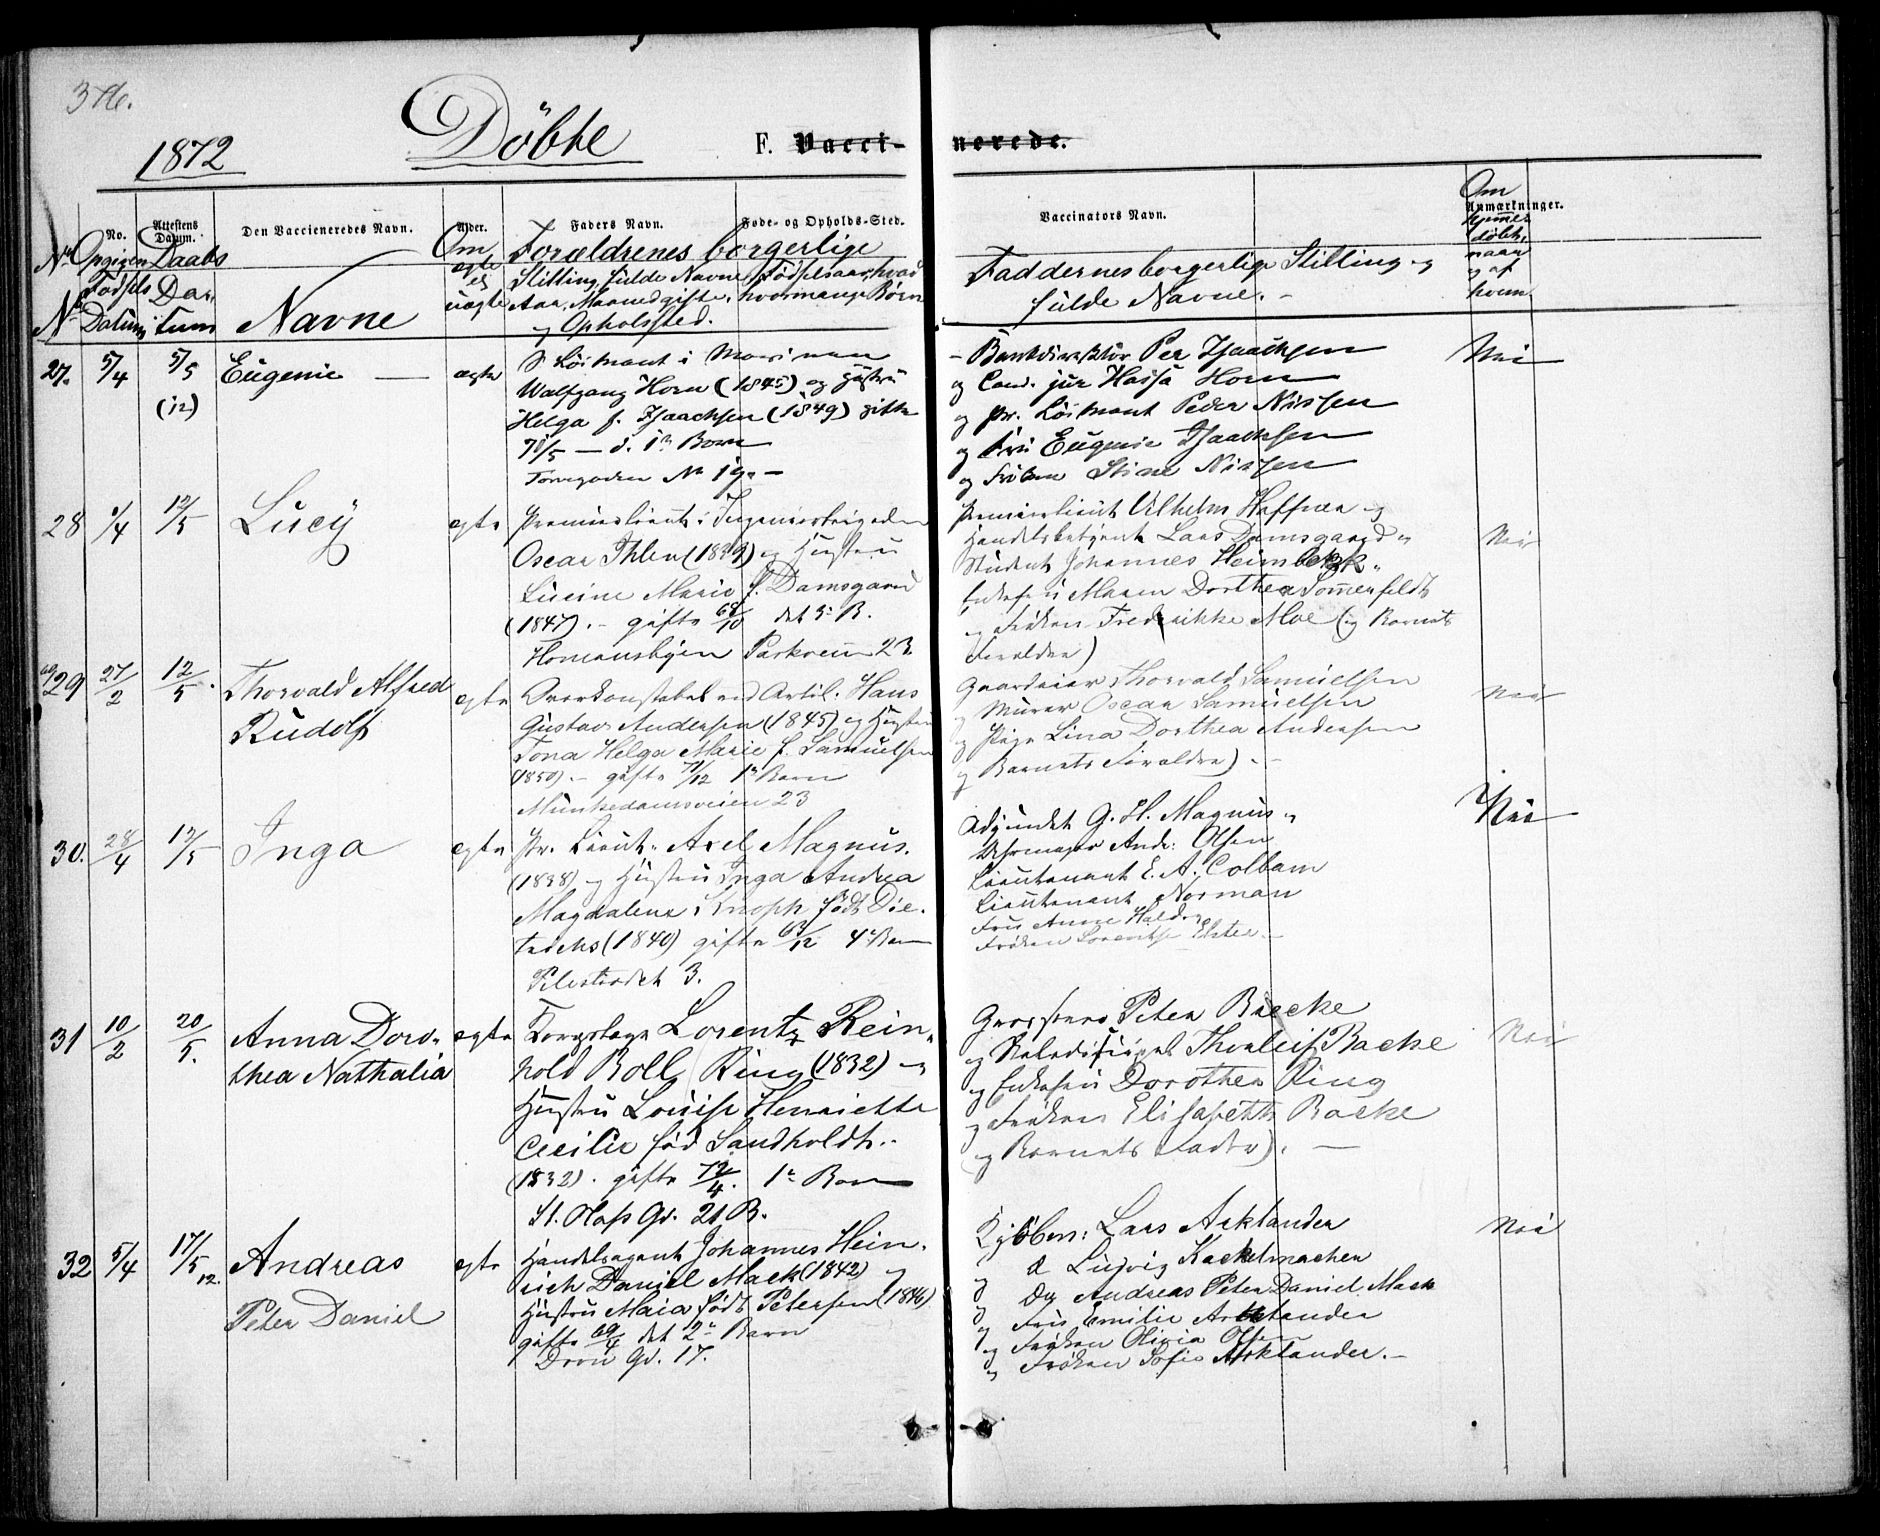 376.
1872
Döbte
F. Vaccinerede.
No.
Attestens Datum.
Den Vaccieneredes Navn.
Alder.
Faders Navn.
Føde- og Opholds-Sted.
Vaccinators Navn.
Anmærkninger.
Fødsels Datum
Daabs Datum
Navne
Om ægte ei uægte
Forældrenes borgerlige
Stilling, fulde Navne, Fødselsaar, hvad
Aar, Maaned gifte, hvormange Børn
og Opholssted.
Faddernes borgerlige Stilling og
fulde Navne. -
Om hjemmedøbt, naar og af hvem
27. 5/4 5/5 (12) Eugenie — ægte
S Löitnant i Marinen
Walfgang Horn (1845) og Hustru
Helga f. Isaachsen (1849) gifte
71/5 — d. 1ste Barn
Torvegaden No 19. -
- Bankdirektör Per Isaachsen
og Cand. jur Hassa Horn
og Pr. Löitnant Peder Nissen
og Fru Eugenie Isaachsen
og Fröken Stine Nissen
Nei
28 1/4 12/5 Lucÿ ægte
Premierlieut. i Ingeniørbrigaden
Oscar Ihlen (1839) og Hustru
Lucine Marie f. Damsgaard
(1847). - gifte 68/10 det 3. B.
Homansbyen Parkveien 23.
Premierlieut Vilhelm Haffner og
Handelsbetjent Lars Damsgaard "
Student Johannes Heimbeck "
Enkefru Maren Dorthea Sommerfeldt
og Frøken Fredrikke Moe (og Barnets
Forældre)
Nei
29 27/2 12/5. Thorvald Alfred
Rudolf ægte
Overkonstabel ved Artil. Hans
Gustav Andersen (1845) og Hustru
Tona Helga Marie f. Samuelsen
(1850). - gifte 71/12 1ste Barn
Munkedamsveien 23
Gaardeier Thorvald Samuelsen
og Murer Oscar Samuelsen
og Pige Lina Dorthea Andersen
og Barnets Forældre). -
Nei
30. 28/4 12/5 Inga ægte
Pr. Lieut. Axel Magnus.
(1838) og Hustru Inga Andrea
Magdalene Knoph født Die-
trichs (1840) gifte 63/12 4de Barn
Pilestrædet 3.
Adjunckt G. H. Magnus "
Uhrmager Andr. Olsen
Lieutenant E. A. Colbam
Lieutenant Norman
Fru Anne
Frøken Lorentse Elster -
Nei
31 10/2 20/5. Anna Doro-
thea Nathalia ægte
Lorentz Rein-
hold Boll Ring (1832) og
Hustru Louise Henriette
Cecilie född Sandholdt. -
(1832). gifte 72/4. 1ste Barn
St. Olafs Gd. 21 B.
Grosserer Peter Backe
og Thorleif Backe
og Enkefru Dorothea Ring
og Frøken Elisabeth Backe
og Barnets Fader). —
Nei
32 5/4 17/5 12. Andreas
Peter Daniel ægte
Handelsagent Johannes Hein-
rich Daniel Mack (1842) og
Hustru Maia født Petersen (1846)
gifte 69/4 det 2det Barn
Dron Gd. 17.
Kjöbm: Lars Arklander
og Ludvig Kackelmachen
og Andreas Peter Daniel Mack
og Fru Emilie Arklander
og Frøken Olivia Olsen
og Frøken Sofie Arklander. -
Nei